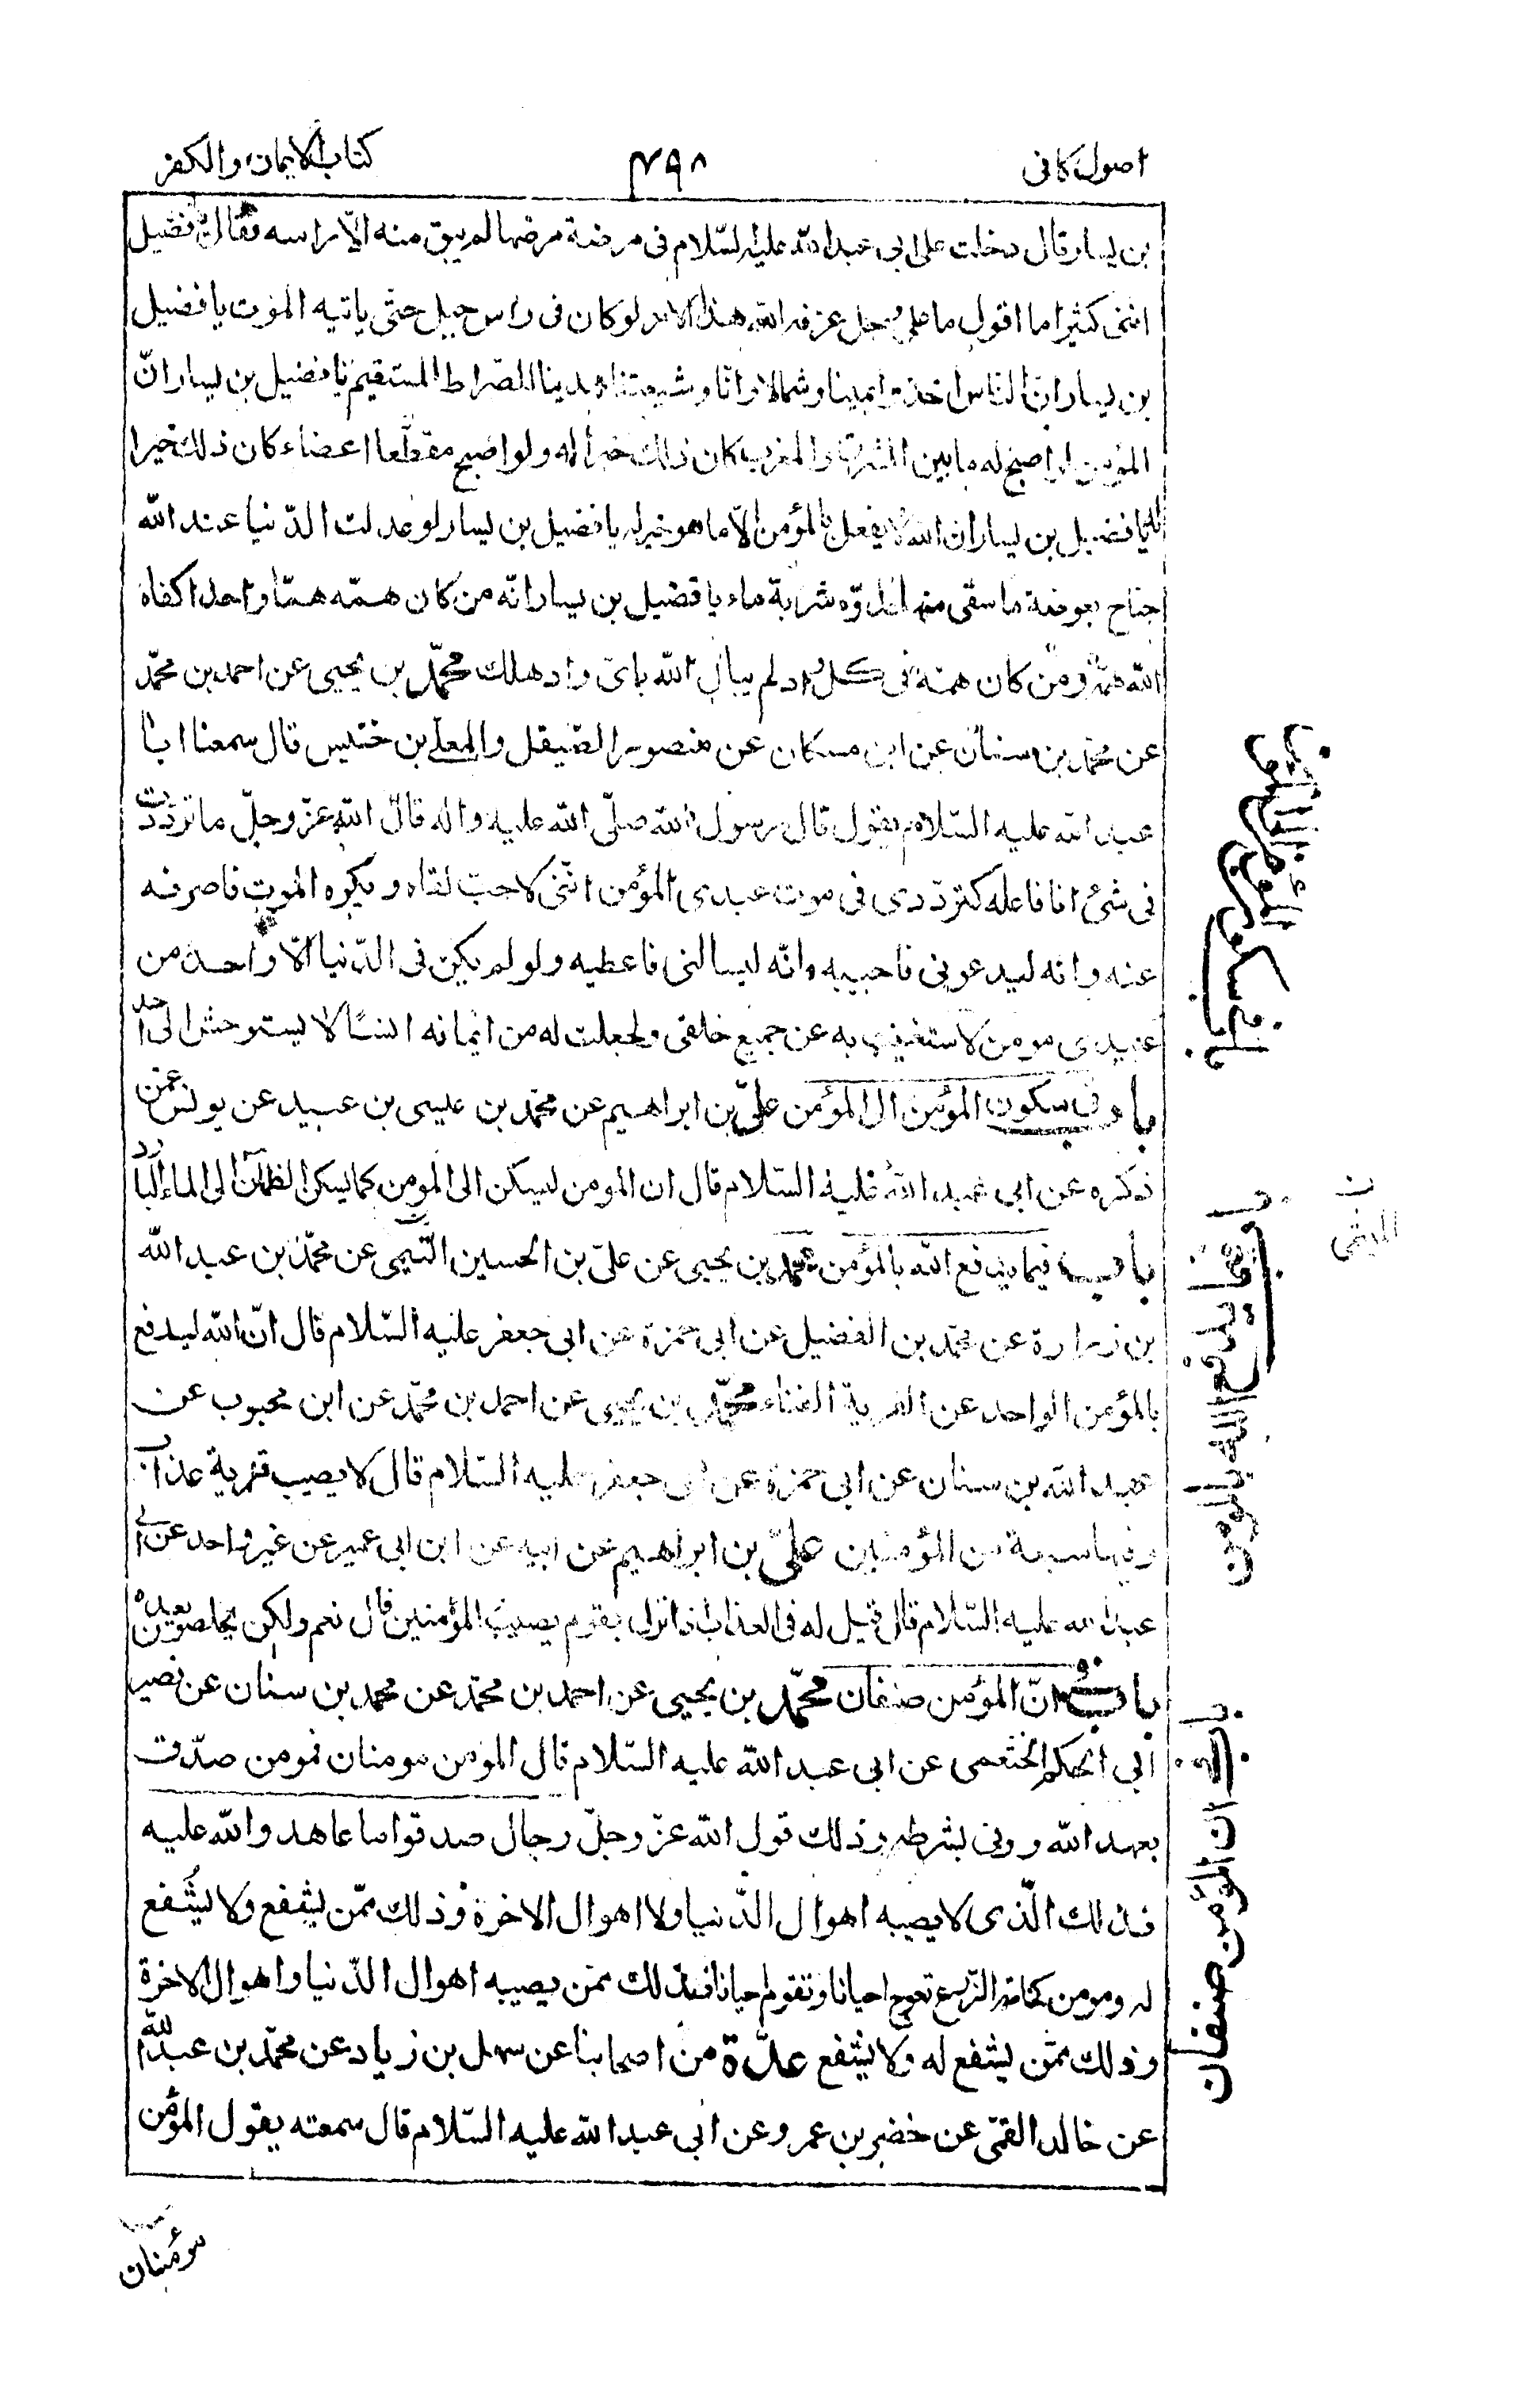 اصول كافى
٤٩٨
كتاب الايمان والكفر
بن يسار قال دخلت على ابى عبد الله عليه السّلام فى مرضة مرضها لم يبق منه الّا راسه فقال يا فضيل
اننى كثيرا ما اقول ما على رجل عرفه الله هذا الامر لو كان فى راس جبل حتّى ياتيه الموت يا فضيل
بن يسار انّ النّاس اخذوا يمينا وشمالا وانّا وشيعتنا هدينا الصّراط المستقيم يا فضيل بن يسار انّ
المؤمن لو اصبح له ما بين المشرق والمغرب كان ذلك خيرا له ولو اصبح مقطّعا اعضاء كان ذلك خيرا
له يا فضيل بن يسار ان الله لا يفعل بالمؤمن الّا ما هو خير له يا فضيل بن يسار لو عدلت الدّنيا عند الله
جناح بعوضة ما سقى منها عدوّه شربة ماء يا فضيل بن يسار انّه من كان همّه همّا واحدا كفاه
الله همّه ومن كان همّه فى كل واد لم يبال الله باىّ واد هلك محمّد بن يحيى عن احمد بن محمّد
عن محمّد بن سنان عن ابن مسكان عن منصور الصّيقل والمعلّى بن خنيس قال سمعنا ابا
عبد الله عليه السّلام يقول قال رسول الله صلّى الله عليه واله قال الله عزّ وجلّ ما تردّدت
فى شئ انا فاعله كتردّدى فى موت عبدى المؤمن انّنى لاحبّ لقاه ويكره الموت فاصرفه
عنه وانه ليدعونى فاجيبه وانّه ليسالنى فاعطيه ولو لم يكن فى الدّنيا الّا واحد من
عبيدى مومن لاستغنيت به عن جميع خلقى ولجعلت له من ايمانه انسًا لا يستوحش الى احد
باب فى سكون المؤمن الى المؤمن علىّ بن ابراهيم عن محمّد بن عيسى بن عبيد عن يونس عمّن
ذكره عن ابى عبد الله عليه السّلام قال ان المومن ليسكن الى المومن كما يسكن الظمآن الى الماء البارد
باب فيما يدفع الله بالمؤمن محمّد بن يحيى عن علىّ بن الحسين التّيمى عن محمّد بن عبد الله
بن زرارة عن محمّد بن الفضيل عن ابى حمزة عن ابى جعفر عليه السّلام قال انّ الله ليدفع
بالمؤمن الواحد عن القرية الفناء محمّد بن يحيى عن احمد بن محمّد عن ابن محبوب عن
عبد الله بن سنان عن ابى حمزة عن ابى جعفر عليه السّلام قال لا يصيب قرية عذاب
وفيها سبعة من المؤمنين علىّ بن ابراهيم عن ابيه عن ابن ابى عمير عن غير واحد عن ابى
عبد الله عليه السّلام قال قيل له فى العذاب اذا نزل بقوم يصيب المؤمنين قال نعم ولكن يخلصون بعده
باب فى انّ المؤمن صنفان محمّد بن يحيى عن احمد بن محمّد عن محمد بن سنان عن نصير
ابى الحكم الخثعمى عن ابى عبد الله عليه السّلام قال المؤمن مومنان فمومن صدّق
بعهد الله ووفى بشرطه وذلك قول الله عزّ وجلّ رجال صدقوا ما عاهدوا الله عليه
فذلك الّذى لا يصيبه اهوال الدّنيا ولا اهوال الاخرة وذلك ممّن يشفع ولا يشفع
له ومومن كخامة الزّرع تعوج احيانا وتقوم احيانا فذلك ممّن يصيبه اهوال الدّنيا واهوال الاخرة
وذلك ممّن يشفع له ولا يشفع عدّة من اصحابنا عن سهل بن زياد عن محمّد بن عبد الله
عن خالد القمّى عن خضر بن عمرو عن ابى عبد الله عليه السّلام قال سمعته يقول المؤمن
مؤمنان
باب فى سكون المؤمن الى المؤمن
الميثمى
ن
باب فيما يدفع الله بالمومن
باب فى ان المؤمن صنفان